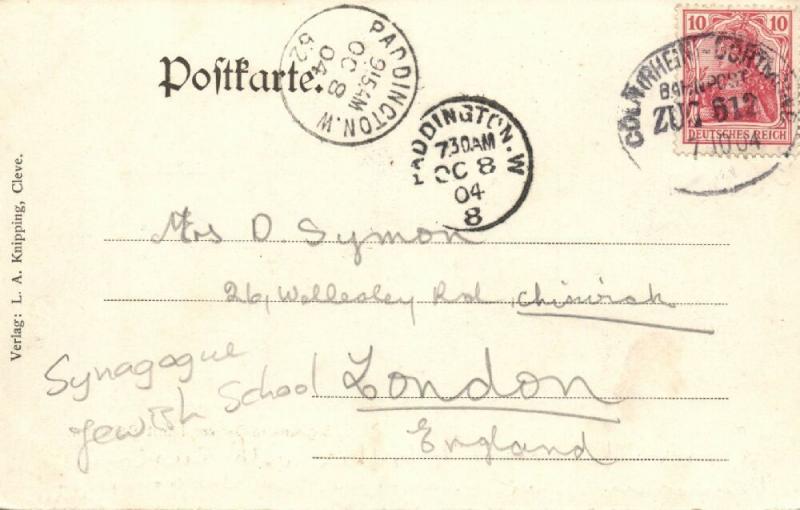 Postkarte.
PADDINGTON.W
915AM
OC 8
04
52
PADDINGTON.W
7.30AM
OC 8
04
8
10 10
DEUTSCHES REICH
BAHNPOST
ZUG 612
7 10 04
Mrs D. Symon
26, Wellesley Rd, Chiswick
London
England
Synagogue
Jewish School
Verlag: L. A. Knipping, Cleve.